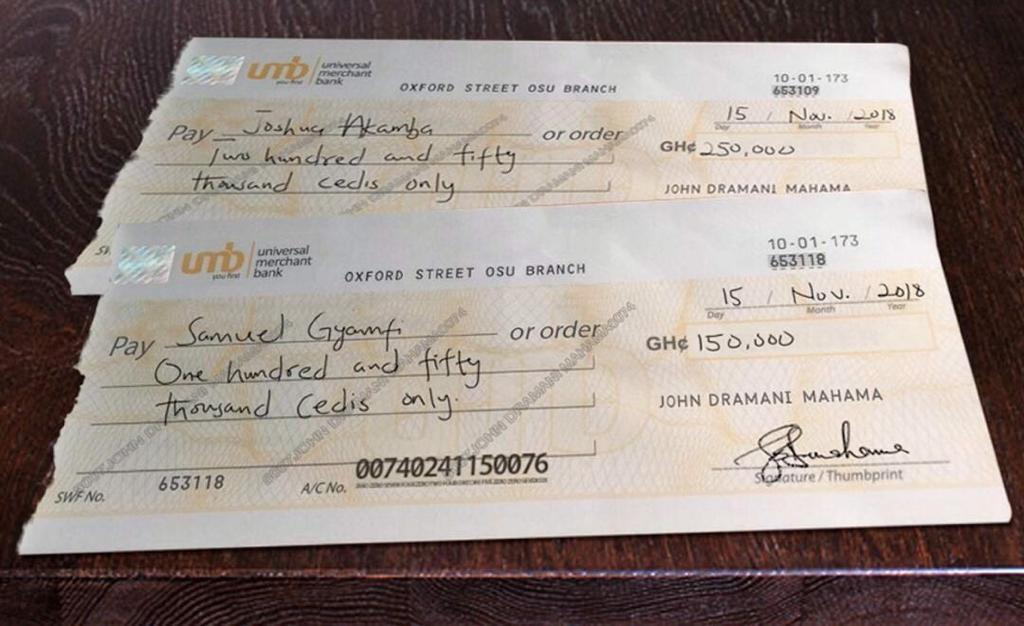 umb universal
you first merchant
bank
OXFORD STREET OSU BRANCH
10-01-173
653109
15 / Nov. / 2018
Day Month Year
Pay Joshua Akamba or order
GH¢ 250,000
Two hundred and fifty
thousand cedis only
JOHN DRAMANI MAHAMA
umb universal
you first merchant
bank
OXFORD STREET OSU BRANCH
10-01-173
653118
15 / Nov. / 2018
Day Month Year
Pay Samuel Gyamfi or order
GH¢ 150,000
One hundred and fifty
thousand Cedis only.
JOHN DRAMANI MAHAMA
00740241150076
SWF No. 653118 A/C No.
Signature / Thumbprint